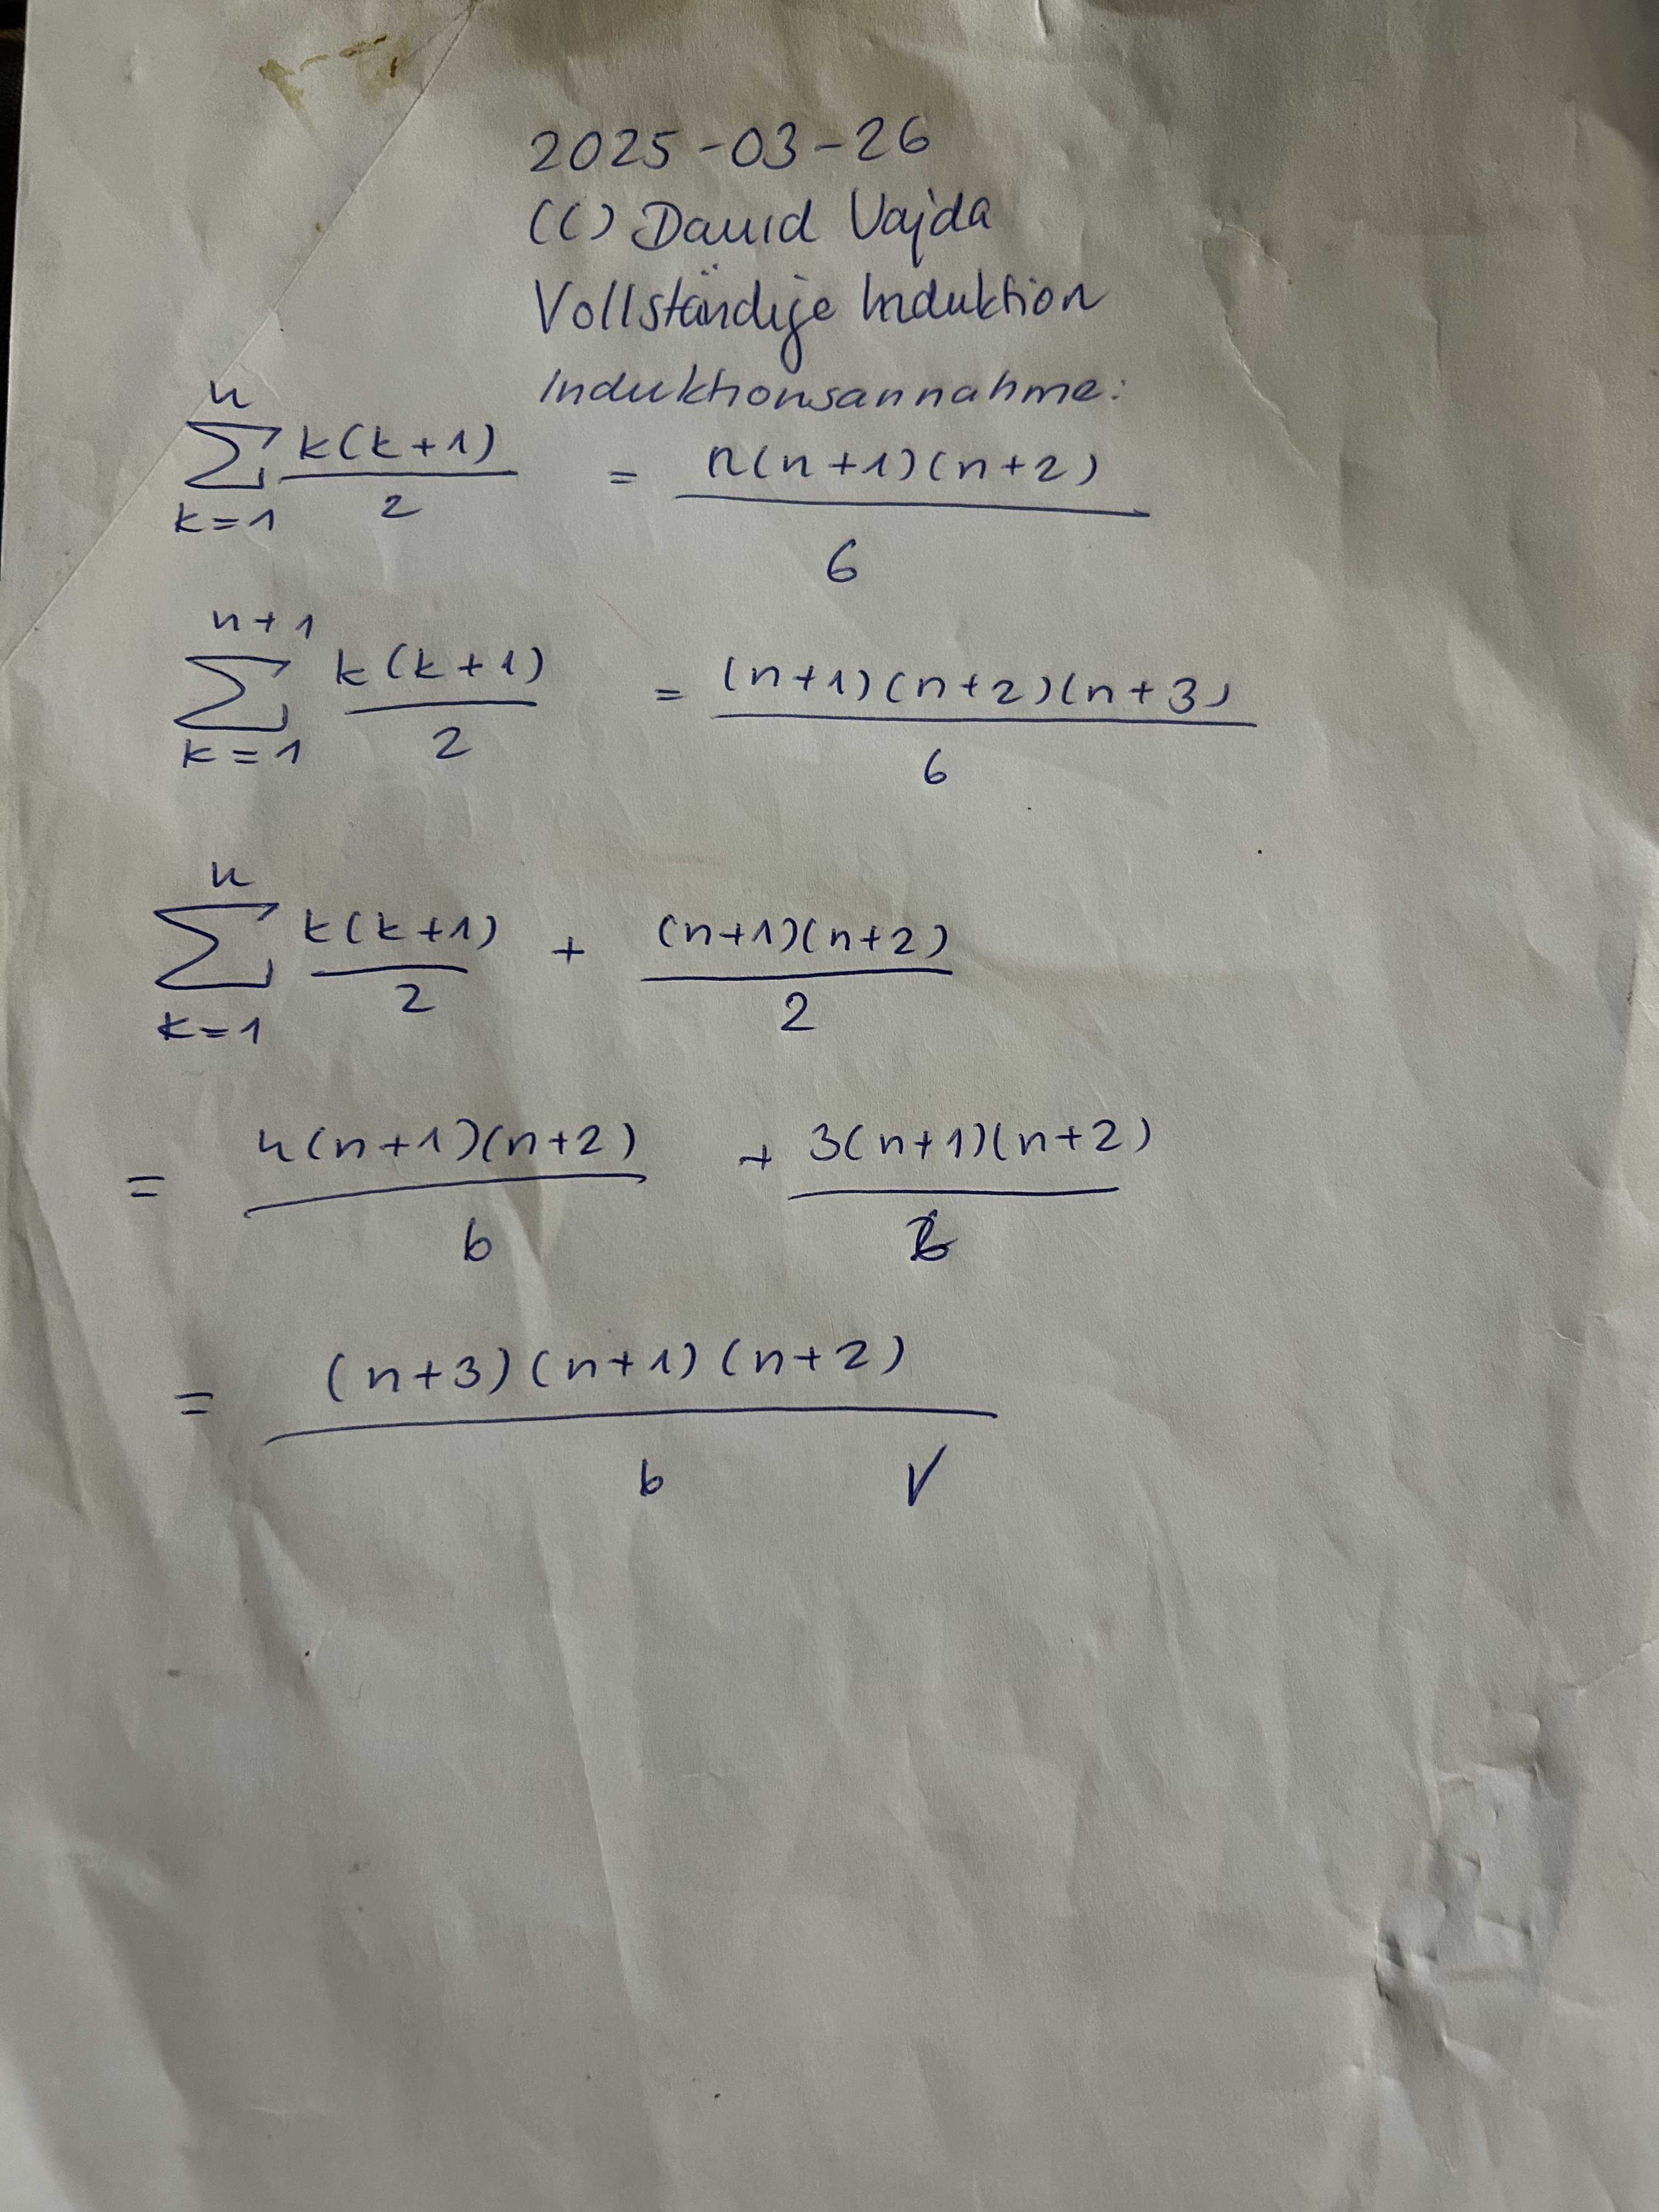 2025-03-26
(C) David Vajda
Vollständige Induktion
Induktionsannahme:
n
∑ k(k+1) / 2 = n(n+1)(n+2) / 6
k=1
n+1
∑ k(k+1) / 2 = (n+1)(n+2)(n+3) / 6
k=1
n
∑ k(k+1) / 2 + (n+1)(n+2) / 2
k=1
= n(n+1)(n+2) / 6 + 3(n+1)(n+2) / 6
= (n+3)(n+1)(n+2) / 6 ✓